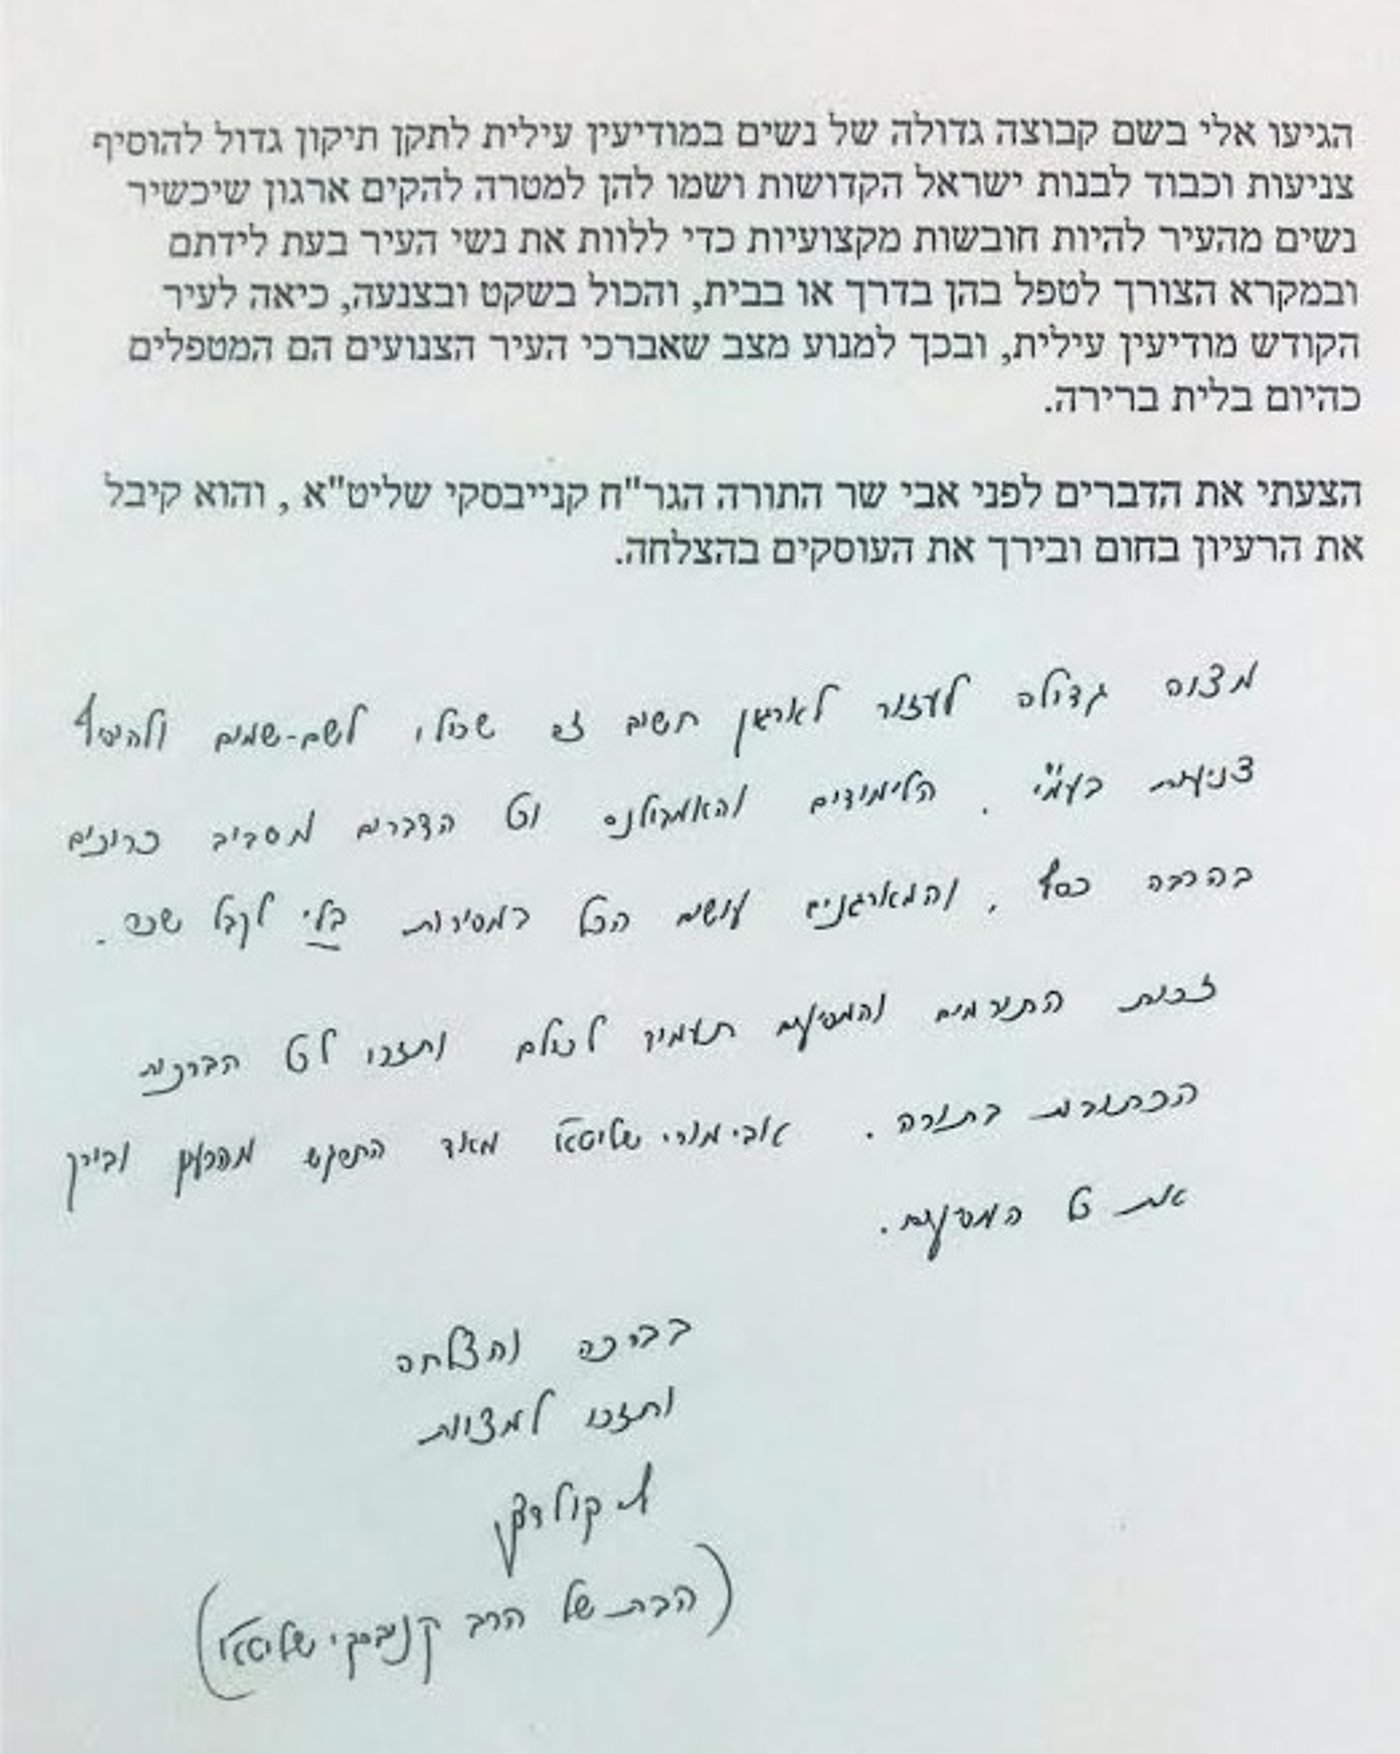 הגיעו אלי בשם קבוצה גדולה של נשים במודיעין עילית לתקן תיקון גדול להוסיף
צניעות וכבוד לבנות ישראל הקדושות ושמו להן למטרה להקים ארגון שיכשיר
נשים מהעיר להיות חובשות מקצועיות כדי ללוות את נשי העיר בעת לידתם
ובמקרא הצורך לטפל בהן בדרך או בבית, והכול בשקט ובצנעה, כיאה לעיר
הקודש מודיעין עילית, ובכך למנוע מצב שאברכי העיר הצנועים הם המטפלים
כהיום בלית ברירה.
הצעתי את הדברים לפני אבי שר התורה הגר"ח קנייבסקי שליט"א , והוא קיבל
את הרעיון בחום ובירך את העוסקים בהצלחה.
מצוה גדולה לעזור לארגון חשוב זה שכולו לשם-שמים ולהוסיף
צניעות בעמ"י . הלימודים והאמבולנס וכל הדברים מסביב כרוכים
בהרבה כסף , והמארגנים עושים הכל במסירות בלי לקבל שכר .
זכות התורמים והמסייעים תעמוד לכולם ותזכו לכל הברכות
הכתובות בתורה . אבי מורי שליט"א מאוד התפעל מהרעיון ובירך
את כל המסייעים .
בברכה והצלחה
ותזכו למצוות
קולדצקי
(הבת של הרב קנייבסקי שליט"א)